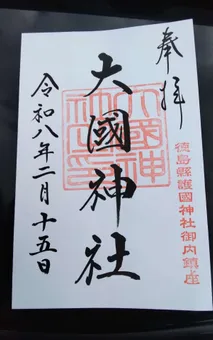 奉拝
徳島縣護國神社御内鎮座
大國神社
令和八年二月十五日